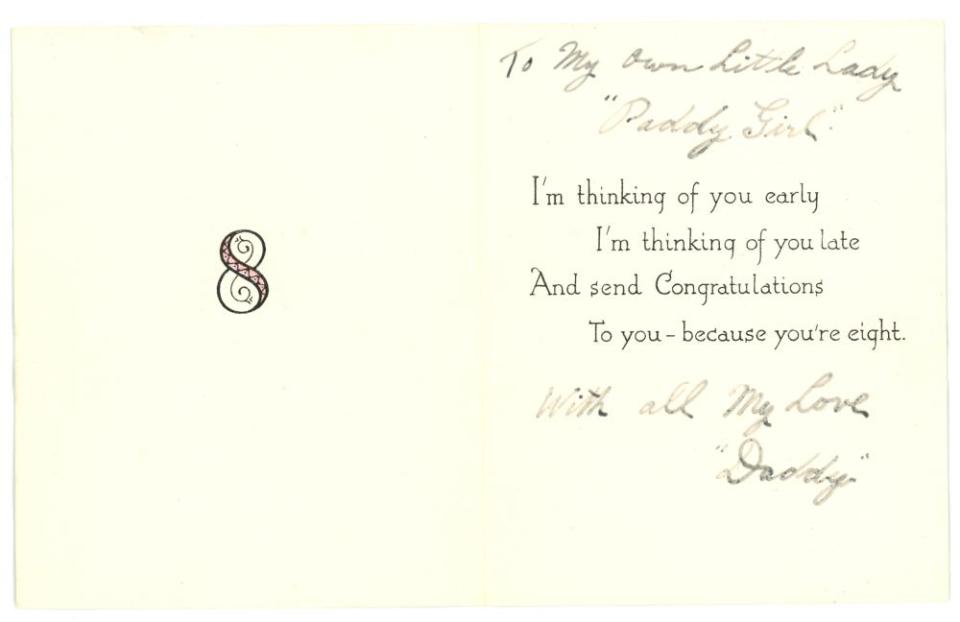 8
To My Own Little Lady
"Paddy Girl"
I'm thinking of you early
I'm thinking of you late
And send Congratulations
To you - because you're eight.
With all My Love
"Daddy"